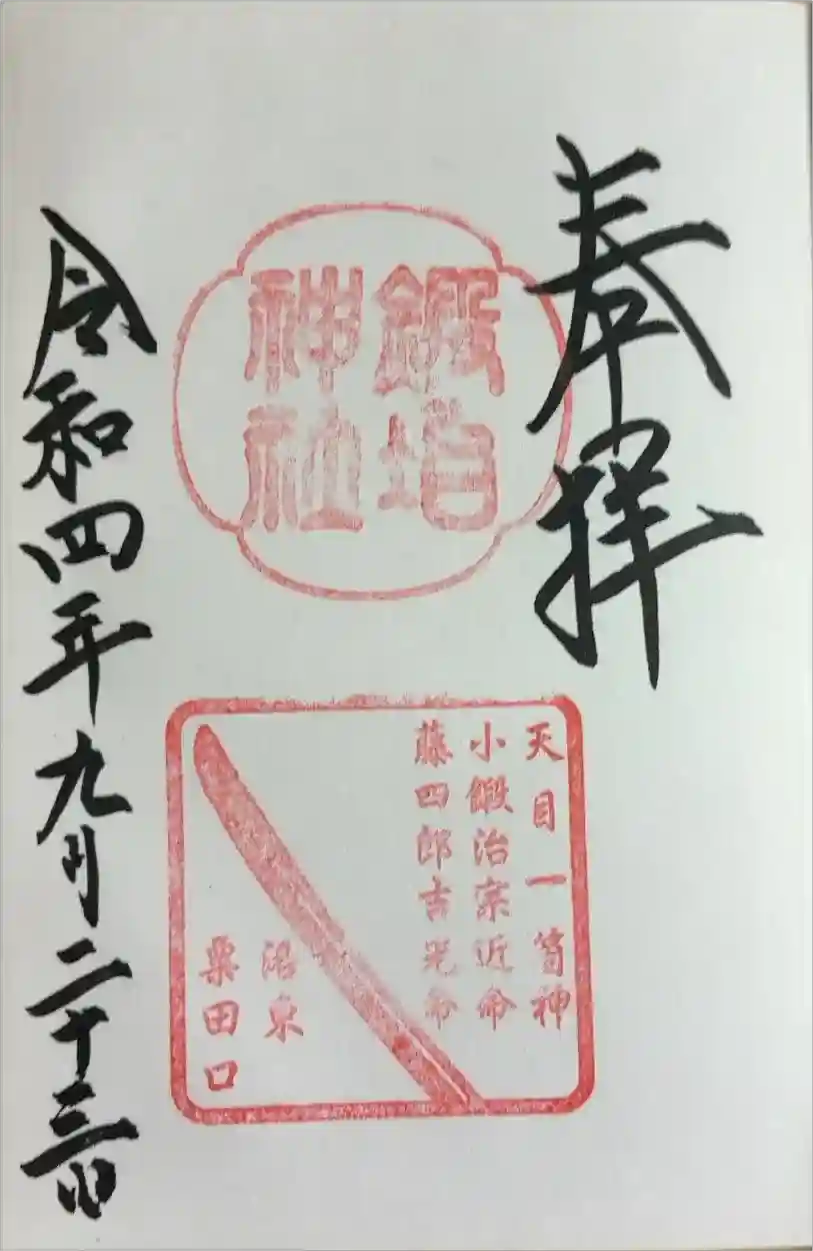 奉拝
鍛冶
神社
天目一筒神
小鍛治宗近命
藤四郎吉光命
洛東
粟田口
令和四年九月二十三日